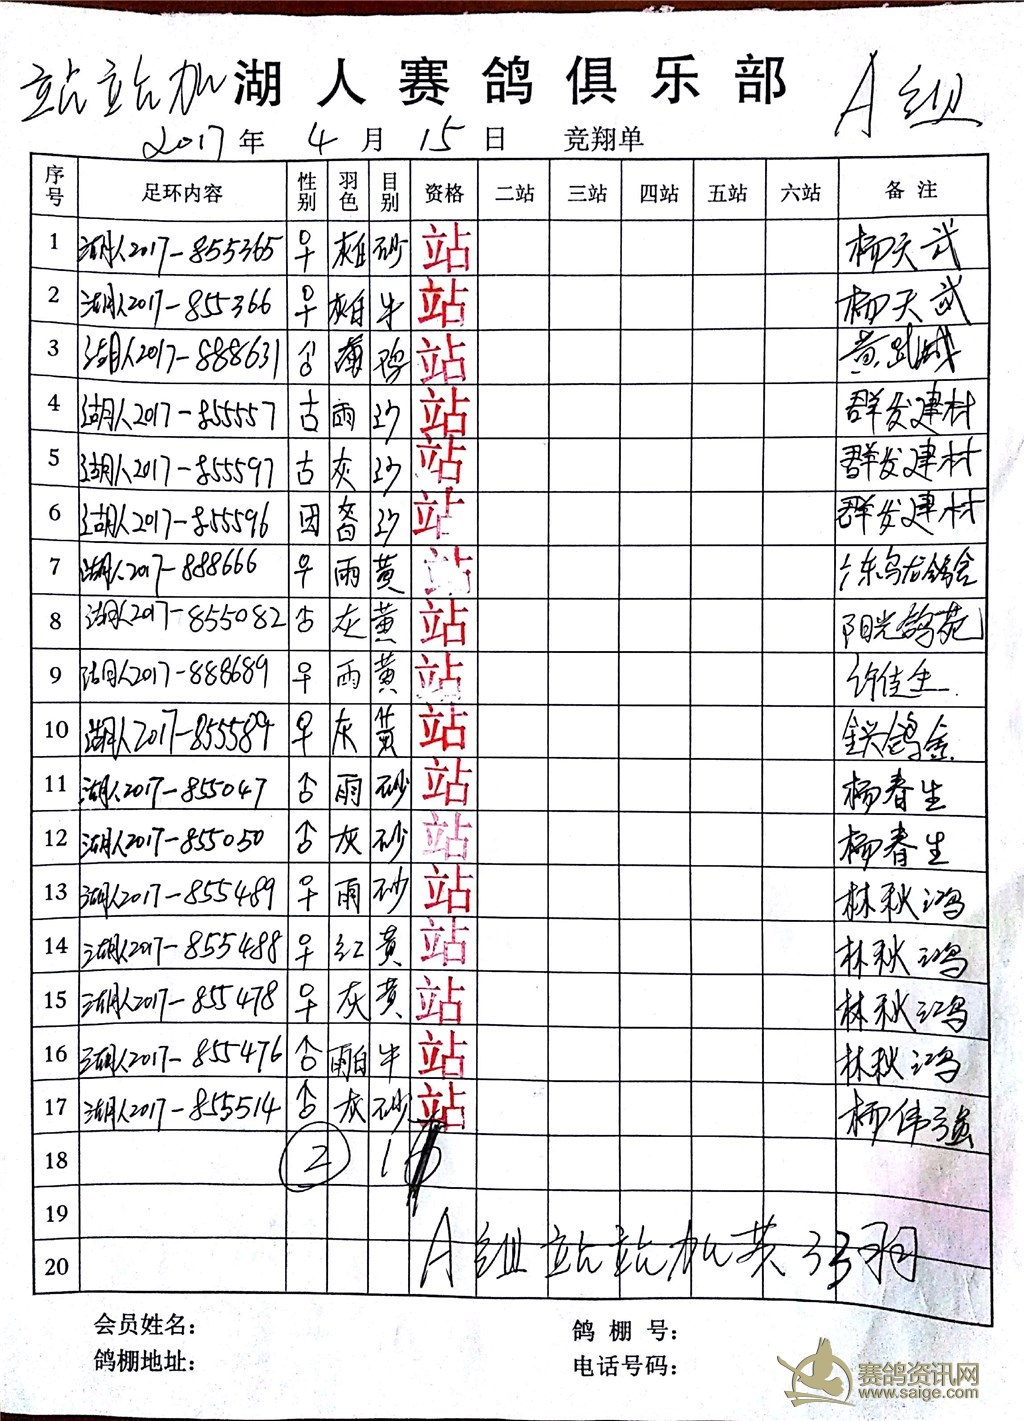 站站加 湖人赛鸽俱乐部 A组
2017年 4月 15日 竞翔单
序号 足环内容 性别 羽色 目别 资格 二站 三站 四站 五站 六站 备注
1 湖人2017-855365 早 砂 站 杨天武
2 湖人2017-855366 早 牛 站 杨天武
3 湖人2017-888631 站
4 湖人2017-855557 古 雨 沙 站 群发建材
5 湖人2017-855597 古 灰 沙 站 群发建材
6 湖人2017-855596 沙 站 群发建材
7 湖人2017-888666 早 雨 黄 站
8 湖人2017-855082 灰 黄 站 阳光鸽苑
9 湖人2017-888689 早 雨 黄 站 许佳生
10 湖人2017-855589 早 灰 黄 站
11 湖人2017-855047 雨 砂 站 杨春生
12 湖人2017-855050 灰 砂 站 杨春生
13 湖人2017-855489 早 雨 砂 站 林秋鸿
14 湖人2017-855488 早 红 黄 站 林秋鸿
15 湖人2017-855478 早 灰 黄 站 林秋鸿
16 湖人2017-855476 雨白 牛 站 林秋鸿
17 湖人2017-855514 灰 砂 站 杨伟强
18 2
19
20 A组站站加共33羽
会员姓名: 鸽棚号:
鸽棚地址: 电话号码:
赛鸽资讯网
www.saige.com